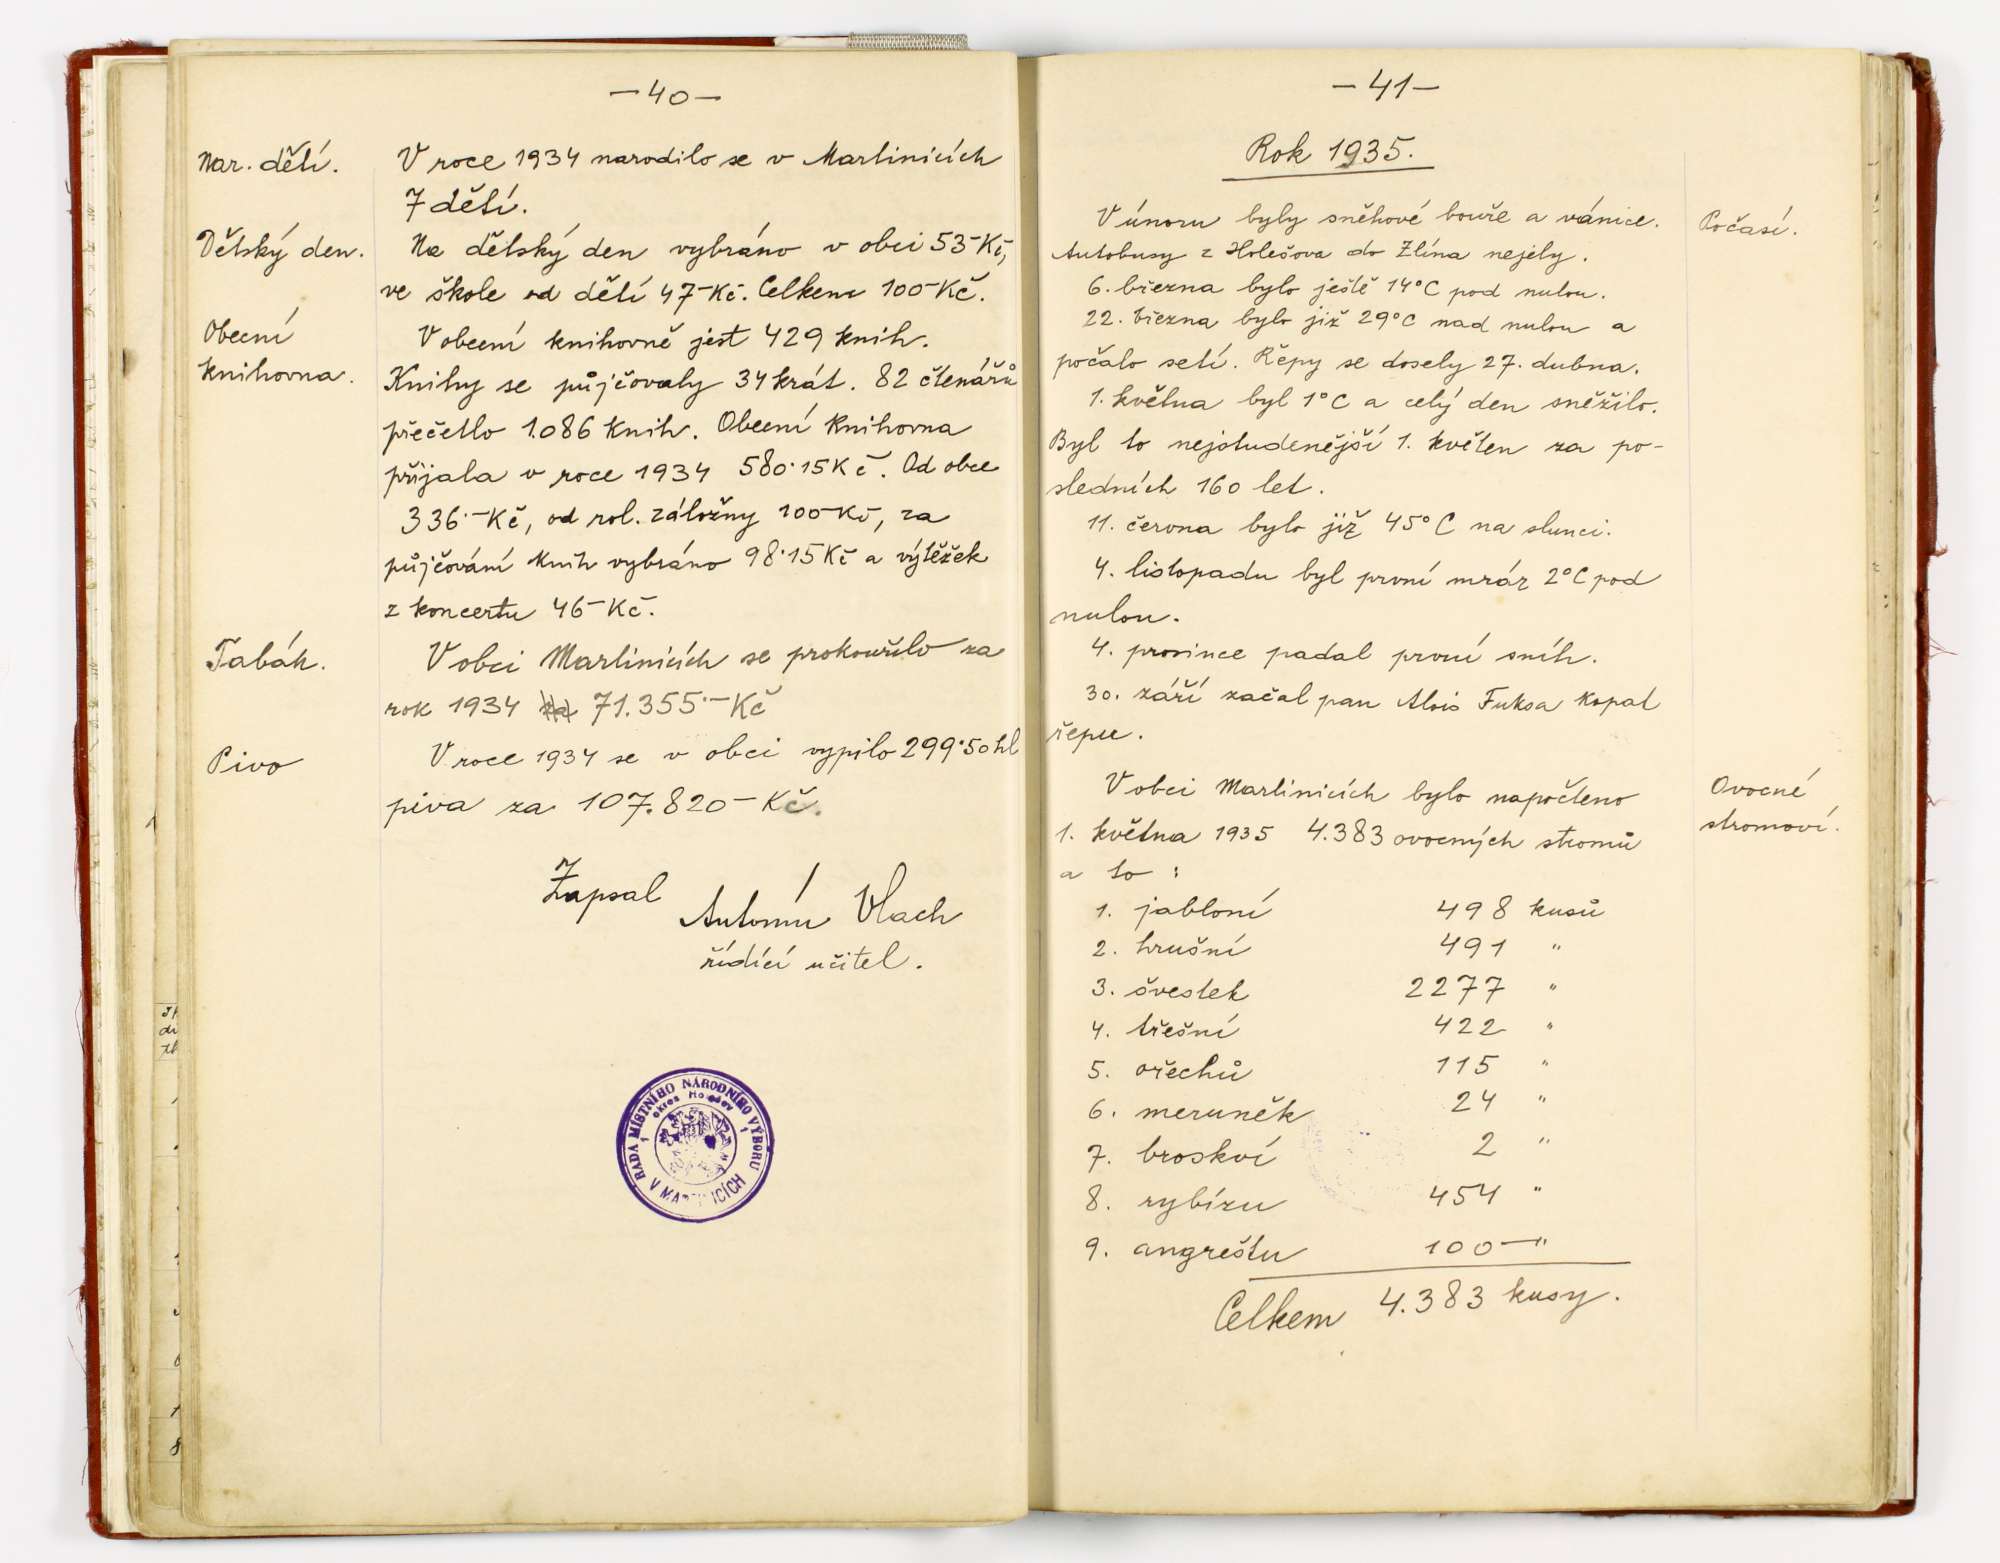 — 40 —
Nar. dětí.
V roce 1934 narodilo se v Martinicích
7 dětí.
Dětský den.
Na dětský den vybráno v obci 53–Kč,
ve škole od dětí 47–Kč. Celkem 100–Kč.
Obecní
knihovna.
V obecní knihovně jest 429 knih.
Knihy se půjčovaly 34 krát. 82 čtenářů
přečetlo 1.086 knih. Obecní knihovna
přijala v roce 1934 580·15 Kč. Od obce
336·–Kč, od rol. záložny 100–Kč, za
půjčování knih vybráno 98·15 Kč a výtěžek
z koncertu 46–Kč.
Tabák.
V obci Martinicích se prokouřilo za
rok 1934 za 71.355·–Kč
Pivo
V roce 1934 se v obci vypilo 299·50 hl
piva za 107.820–Kč.
Zapsal
Antonín Vlach
řídící učitel.
RADA MÍSTNÍHO NÁRODNÍHO VÝBORU
okres Holešov
1 1
V MARTINICÍCH
— 41 —
Rok 1935.
Počasí.
V únoru byly sněhové bouře a vánice.
Autobusy z Holešova do Zlína nejely.
6. března bylo ještě 14°C pod nulou.
22. března bylo již 29°C nad nulou a
počalo setí. Řepy se dosely 27. dubna.
1. května byl 1°C a celý den sněžilo.
Byl to nejstudenější 1. květen za po-
sledních 160 let.
11. června bylo již 45°C na slunci.
4. listopadu byl první mráz 2°C pod
nulou.
4. prosince padal první sníh.
30. září začal pan Alois Fuksa kopat
řepu.
Ovocné
stromoví.
V obci Martinicích bylo napočteno
1. května 1935 4.383 ovocných stromů
a to :
1. jabloní 498 kusů
2. hrušní 491 "
3. švestek 2277 "
4. třešní 422 "
5. ořechů 115 "
6. meruněk 24 "
7. broskví 2 "
8. rybízu 454 "
9. angreštu 100 — "
Celkem 4.383 kusy.